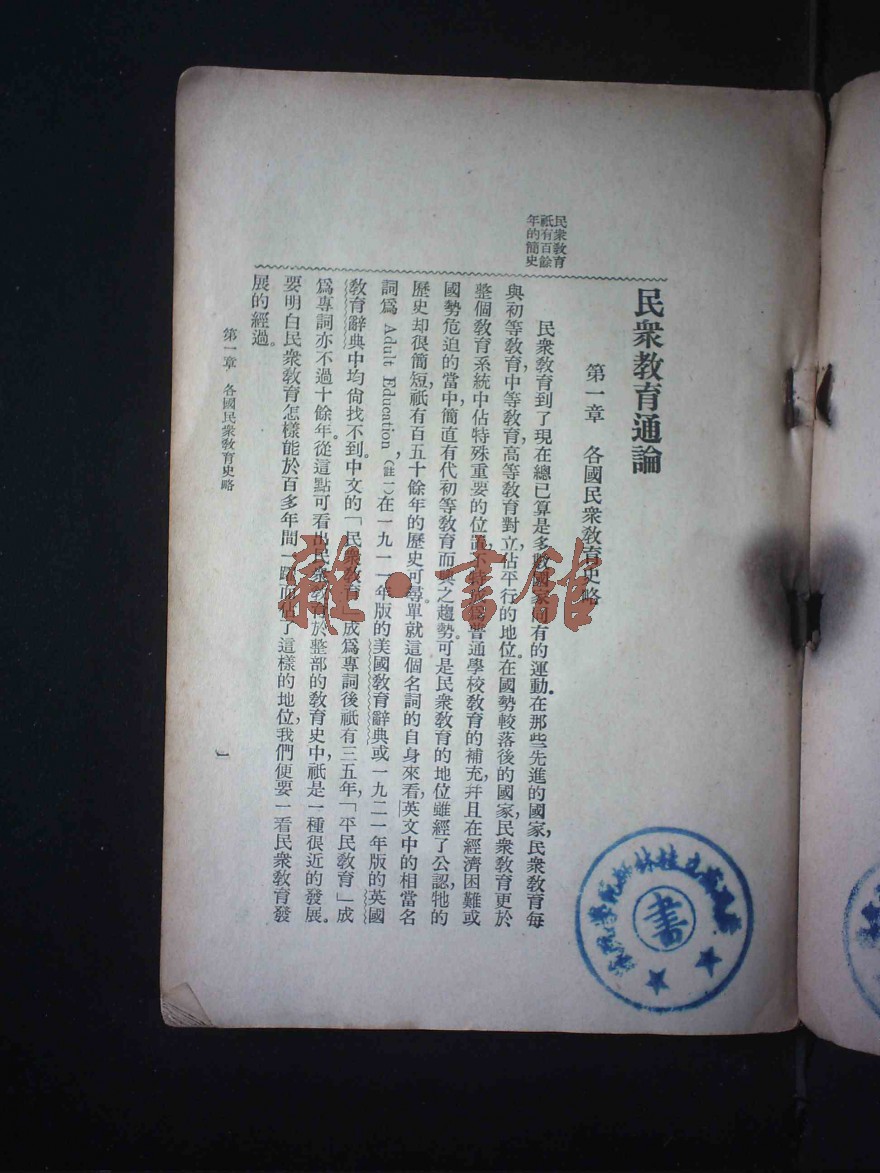 民衆教育通論
第一章　各國民衆教育史略
民衆教育
祇有百餘
年的簡史
民衆教育到了現在總已算是多數國家所有的運動。在那些先進的國家，民衆教育每
與初等教育，中等教育，高等教育對立，佔平行的地位。在國勢較落後的國家，民衆教育更於
整個教育系統中佔特殊重要的位置，不特爲普通學校教育的補充，幷且在經濟困難或
國勢危迫的當中，簡直有代初等教育而興之趨勢。可是民衆教育的地位雖經了公認，牠的
歷史却很簡短，祇有百五十餘年的歷史可尋。單就這個名詞的自身來看，英文中的相當名
詞爲 Adult Education，（註一）在一九一一年版的美國教育辭典或一九二一年版的英國
教育辭典中均尙找不到。中文的「民衆教育」成爲專詞後祇有三五年，「平民教育」成
爲專詞亦不過十餘年。從這點可看出民衆教育於整部的教育史中，祇是一種很近的發展。
要明白民衆教育怎樣能於百多年間一躍而佔了這樣的地位，我們便要一看民衆教育發
展的經過。
第一章　各國民衆教育史略
一
雜·書館
書